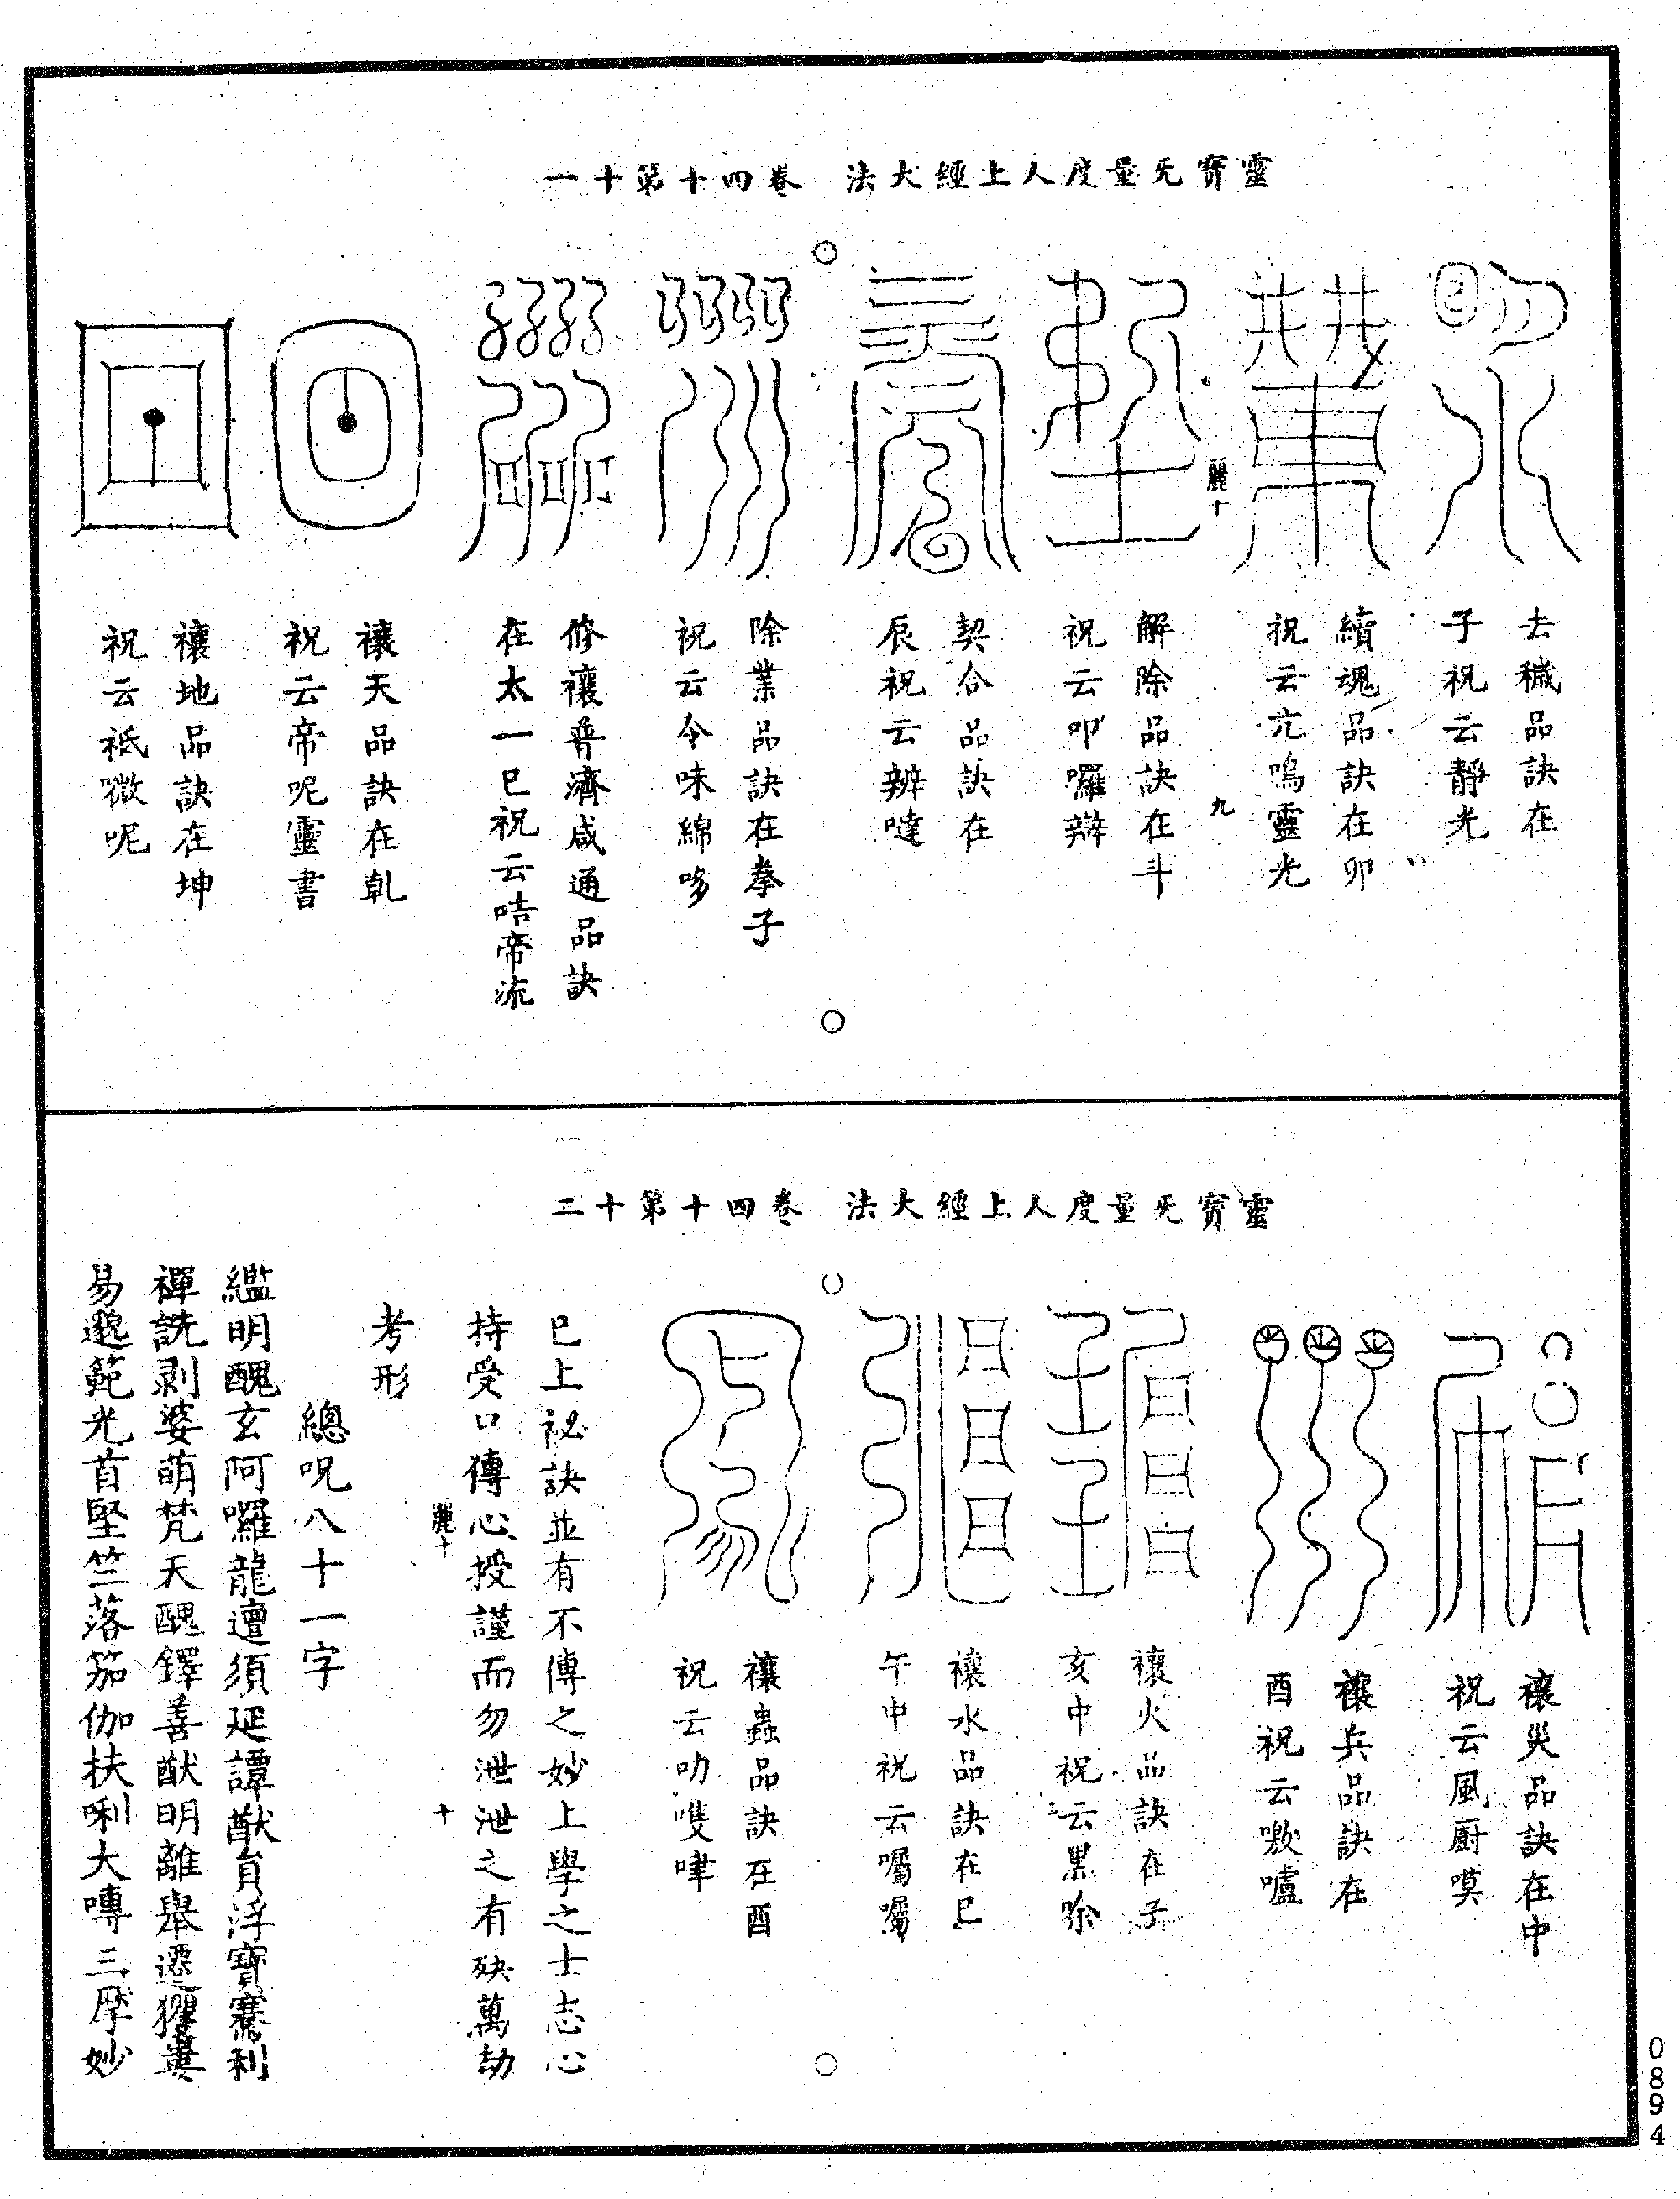 靈寶无量度人上經大法　卷四十第十一
去穢品訣在
子祝云靜光
續魂品訣在卯
祝云亢嗚靈光
麗十
九
解除品訣在斗
祝云叩囉辯
契合品訣在
辰祝云辨噠
除業品訣在拳子
祝云令味綿哆
修禳普濟咸通品訣
在太一巳祝云咭帝流
禳天品訣在乹
祝云帝呢靈書
禳地品訣在坤
祝云祇㗲呢
靈寶无量度人上經大法　卷四十第十二
禳災品訣在中
祝云風厨嘆
禳兵品訣在
酉祝云嗷嚧
禳火品訣在子
亥中祝云黑
禳水品訣在巳
午中祝云囑囑
禳蟲品訣在酉
祝云叻嘊啅
巳上祕訣並有不傳之妙上學之士志心
持受口傳心授謹而勿泄泄之有殃萬劫
麗十
十
考形
總呪八十一字
繿明醜玄阿囉龍邅須延譚猷貟浮寶騫利
禪詵剥婆萌梵天醜鐸善猷明離舉遷
易邈範光首堅竺落笳伽扶唎大嚩三摩妙
0894